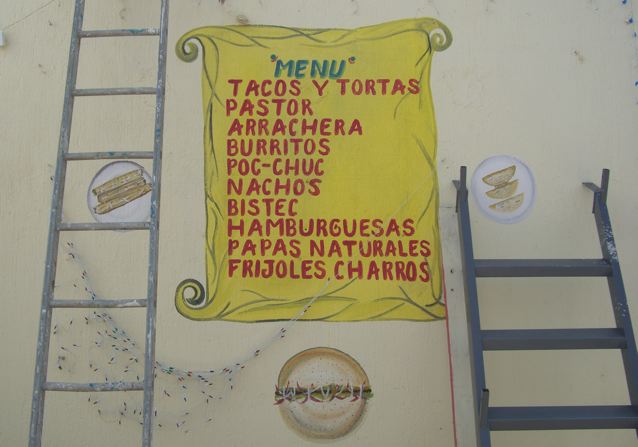 "MENU"
TACOS Y TORTAS
PASTOR
ARRACHERA
BURRITOS
POC-CHUC
NACHOS
BISTEC
HAMBURGUESAS
PAPAS NATURALES
FRIJOLES CHARROS